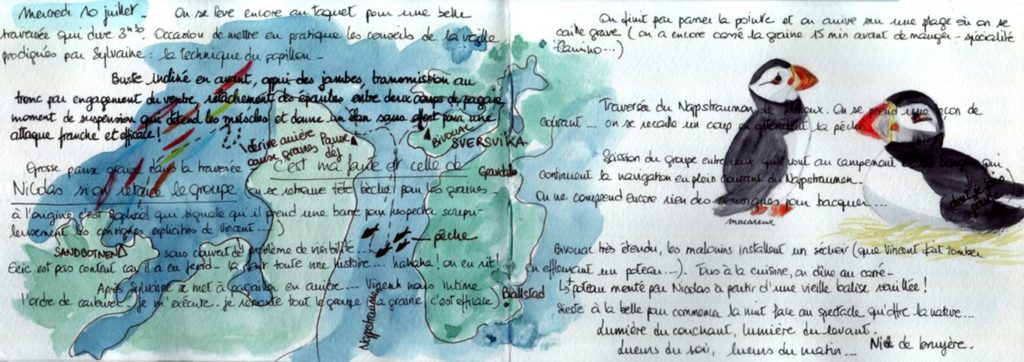 Mercredi 10 juillet - On se lève encore au taquet pour une belle
traversée qui dure 3h30. Occasion de mettre en pratique les conseils de la veille
prodigués par Sylvaine : la technique du papillon -
Buste incliné en avant, appui des jambes, transmission au
tronc par engagement du ventre, relâchement des épaules entre deux coups de pagaie,
moment de suspension qui détend les muscles et donne un élan sans effort pour une
attaque franche et efficace !
dérive arrière
cause graines
Pause
def
Bivouac
SVERSVIKA
Grosse pause graine dans la traversée C'est ma faute et celle de
Gravdal
Nicolas si on retarde le groupe on se retrouve tête bêche pour les graines.
à l'origine c'est Raphaël qui signale qu'il prend une barre pour respecter scrupu-
leusement les consignes explicites de Vincent...)
pêche
SANDBOTNEN sous couvert d'problème de visibilité...
Eric est pas content car il a eu froid - va dont toute une histoire... hahaha ! on en rit !
Après Sylvaine se met à cagailler en arrière... Vincent nous intime
l'ordre de carburer. je m'exécute. je remonte tout le groupe (la graine c'est efficace)
Napstraumen
Ballstad
On finit par passer la pointe et on arrive sur une plage où on se
caille grave (on a encore cassé la graine 15 min avant de manger - spécialité
Camino...)
Traversée du Napstraumen On se prend une leçon de
courant... on se recaille un coup en attendant la pêche
Scission du groupe entre ceux qui vont au campement qui
continuent la navigation en plein courant du Napstraumen...
On ne comprend encore rien des consignes pour bacquer...
macareux
Bivouac très étendu, les malouins installent un séchoir (que Vincent fait tomber
en effleurant un poteau...). Duo à la cuisine, on dîne au carré -
poteau monté par Nicolas à partir d'une vieille balise rouillée !
Sieste à la belle pour commencer la nuit face au spectacle qu'offre la nature...
Lumière du couchant, lumière du levant.
Lueurs du soir, lueurs du matin... Nid de bruyère.